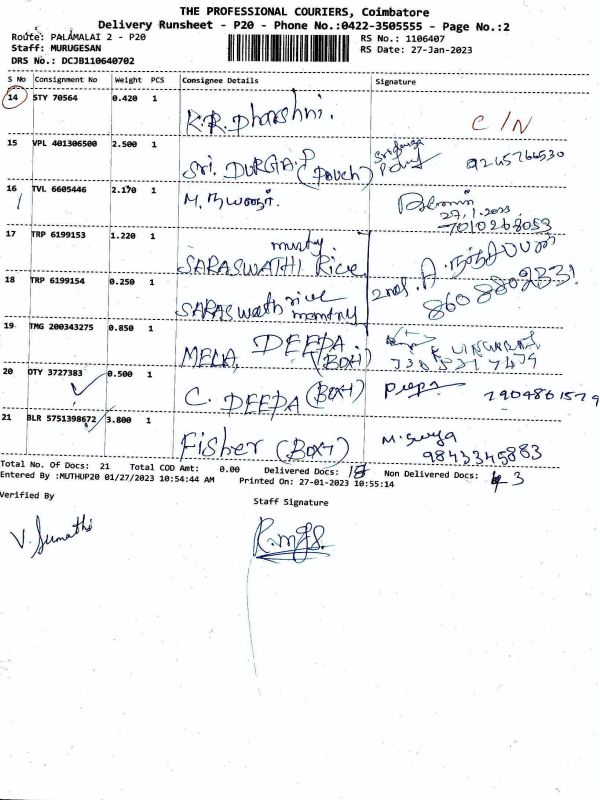 THE PROFESSIONAL COURIERS, Coimbatore
Delivery Runsheet - P20 - Phone No.:0422-3505555 - Page No.:2
Route: PALAMALAI 2 - P20
Staff: MURUGESAN
DRS No.: DCJB110640702
RS No.: 1106407
RS Date: 27-Jan-2023
S No Consignment No Weight PCS Consignee Details Signature
14 STY 70564 0.420 1 K.R. Dharshni. C/N
15 VPL 401306500 2.500 1 Sri. DURGA.P (Pouch) 9245766530
16 TVL 6605446 2.170 1 M. 27.1.2023
7010268053
17 TRP 6199153 1.220 1 SARASWATHI Rice
18 TRP 6199154 0.250 1 SARASwath rice 8608802331
19 TMG 200343275 0.850 1 DEEPA
20 DTY 3727383 0.500 1 C. DEEPA (BOX1) 7904861579
21 BLR 5751398672 3.800 1 Fisher (BOX1) M. Surya
9843345883
Total No. Of Docs: 21 Total COD Amt: 0.00 Delivered Docs: 18 Non Delivered Docs: 3
Entered By :MUTHUP20 01/27/2023 10:54:44 AM Printed On: 27-01-2023 10:55:14
Verified By Staff Signature
V. Sumathi